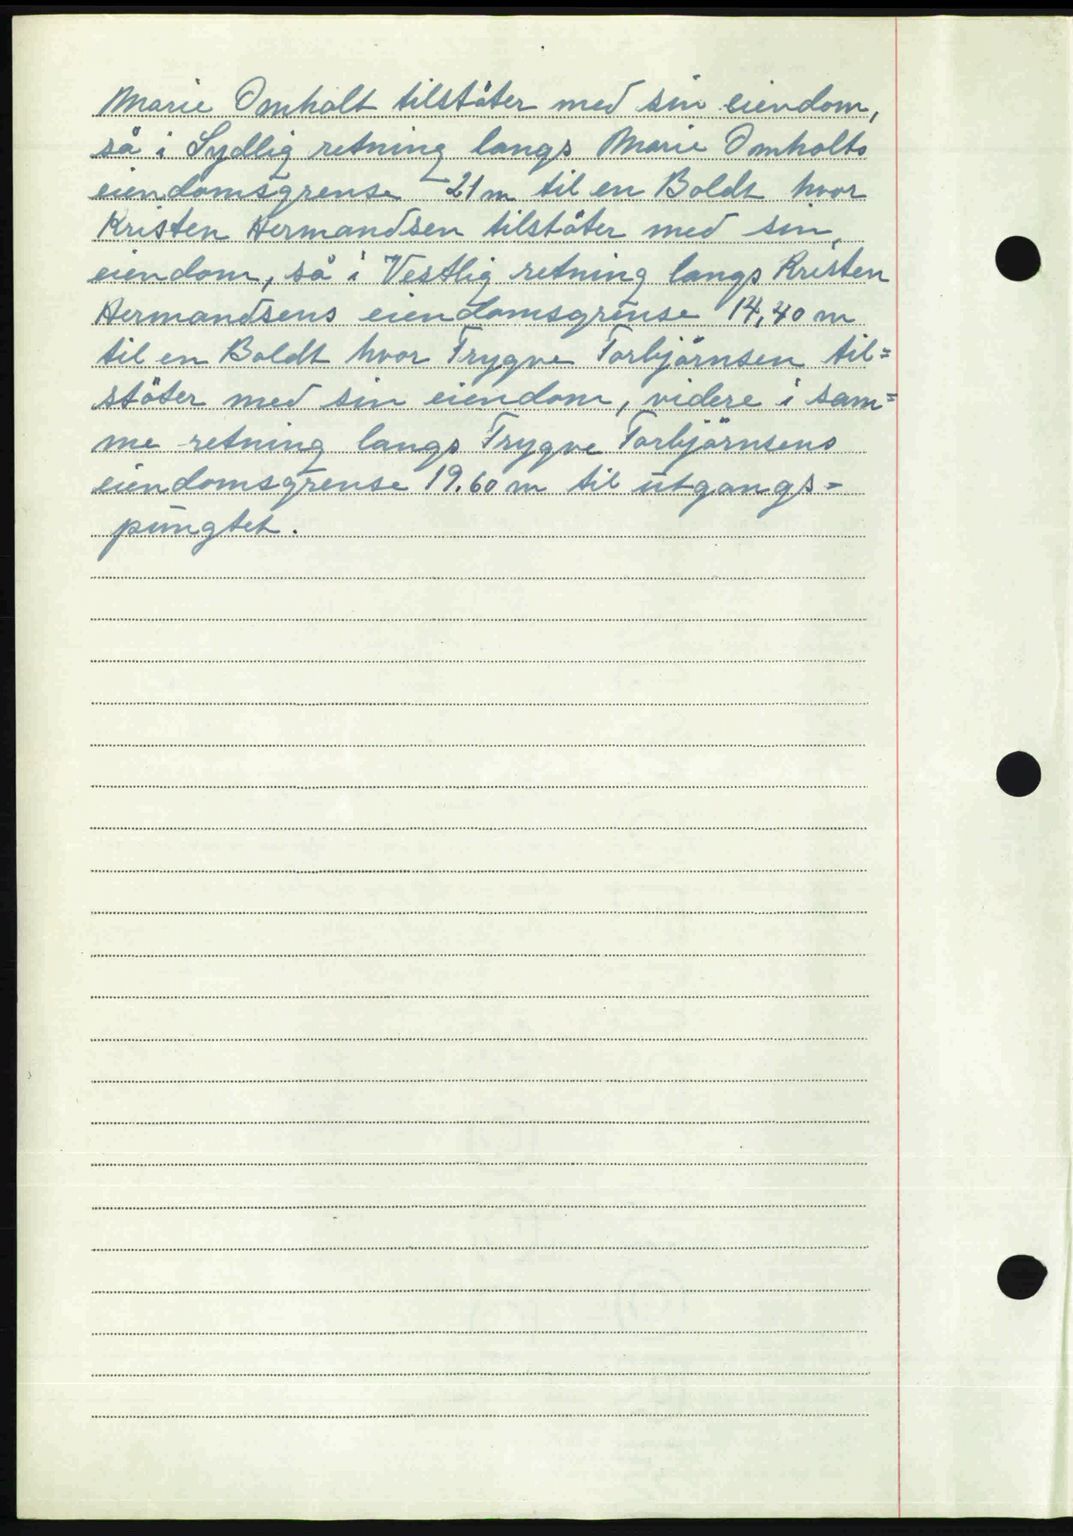 Marie Omholt tilstöter med sin eiendom,
så i Sydlig retning langs Marie Omholts
eiendomsgrense 21 m til en Boldt hvor
Kristen Hermandsen tilstöter med sin,
eiendom, så i Vestlig retning langs Kristen
Hermandsens eiendomsgrense 14,40 m
til en Boldt hvor Trygve Torbjörnsen til=
stöter med sin eiendom, videre i sam=
me retning langs Trygve Torbjörnsens
eiendomsgrense 19.60 m til utgangs=
pungtet.